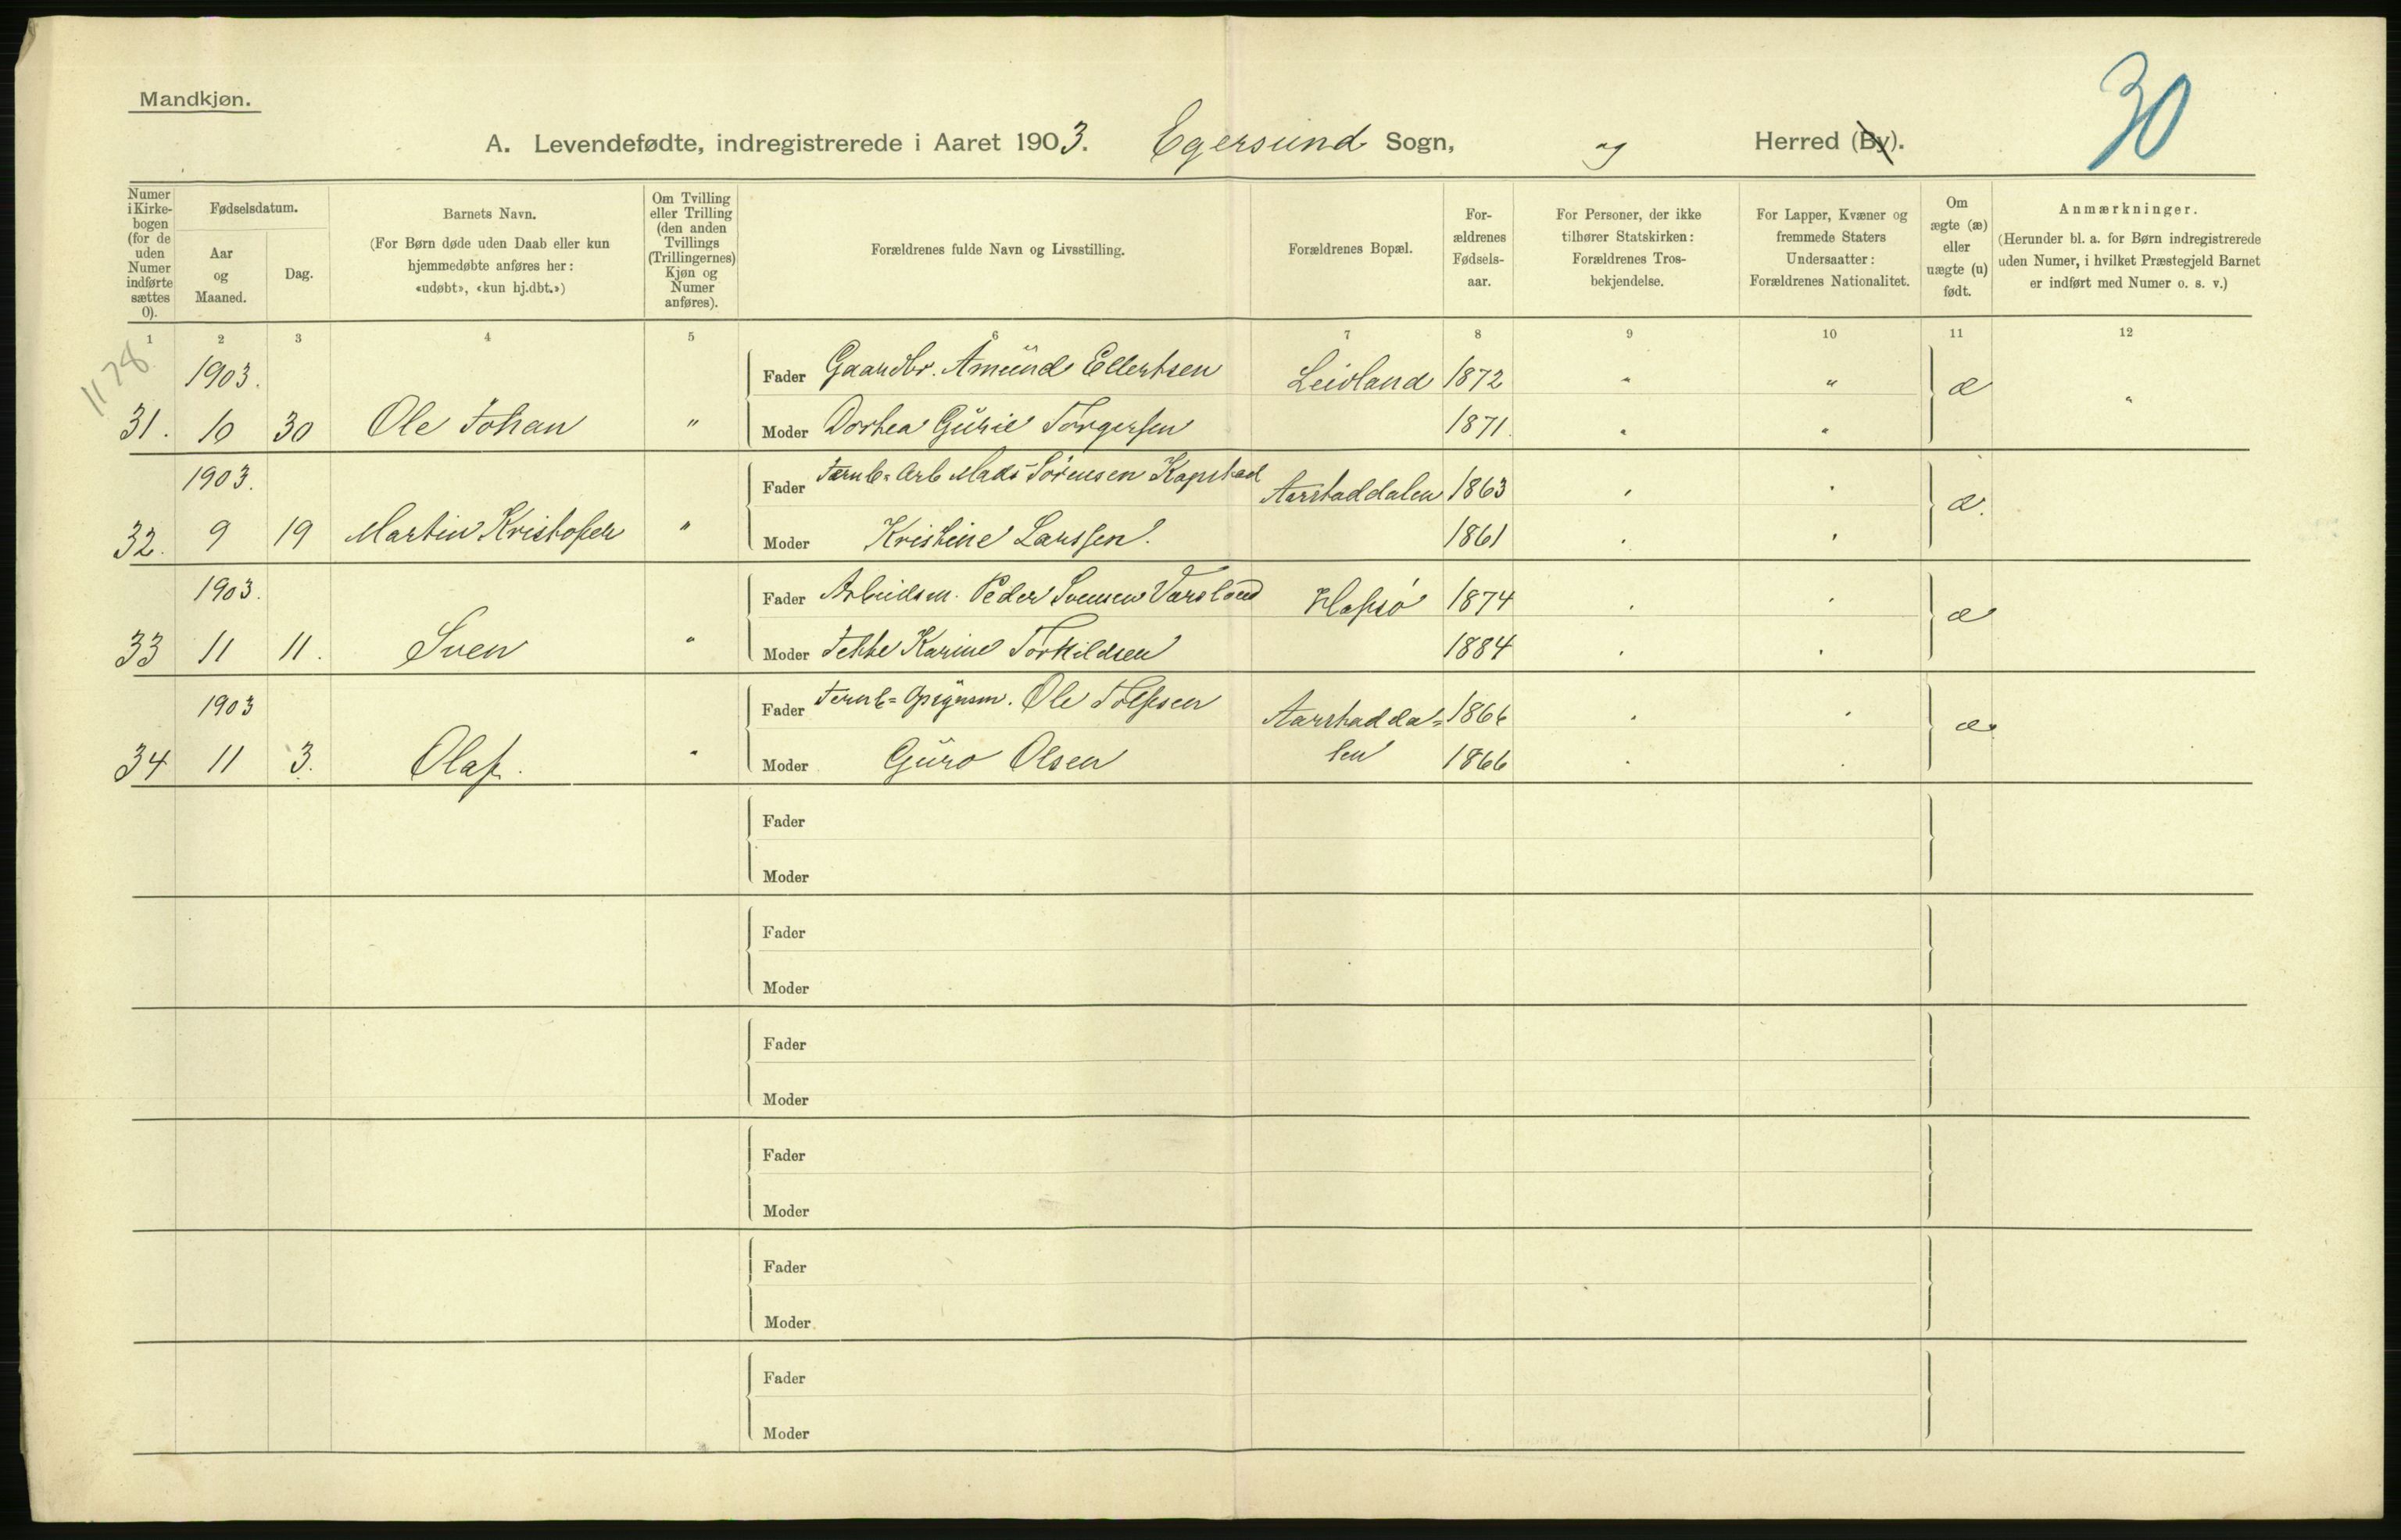 Mandkjøn.
30
A. Levendefødte, indregistrerede i Aaret 1903. Egersund Sogn, og Herred (By).
Numer i Kirkebogen (for de uden Numer indførte sættes 0).
Fødselsdatum.
Aar og Maaned.
Dag.
Barnets Navn.
(For Børn døde uden Daab eller kun hjemmedøbte anføres her: «udøbt», «kun hj.dbt.»)
Om Tvilling eller Trilling (den anden Tvillings (Trillingernes) Kjøn og Numer anføres).
Forældrenes fulde Navn og Livsstilling.
Forældrenes Bopæl.
Forældrenes Fødselsaar.
For Personer, der ikke tilhører Statskirken: Forældrenes Trosbekjendelse.
For Lapper, Kvæner og fremmede Staters Undersaatter: Forældrenes Nationalitet.
Om ægte (æ) eller uægte (u) født.
Anmærkninger.
(Herunder bl. a. for Børn indregistrerede uden Numer, i hvilket Præstegjeld Barnet er indført med Numer o. s. v.)
1 2 3 4 5 6 7 8 9 10 11 12
1178
1903. Fader Gaardbr. Amund Ellertsen Leidland 1872 " " æ "
31. 10 30 Ole Johan " Moder Dorthea Gurie Torgersen 1871 " "
1903. Fader Jernb=Arb Mads Sørensen Kapstad Aarstaddalen 1863 " " æ.
32. 9 19 Martin Kristofer " Moder Kristine Larssen. 1861 " "
1903. Fader Arbeidsm. Peder Svensen Varsland 1874 " " æ
33 11 11. Sven " Moder Karine Torkildsen 1884 " "
1903 Fader Jernb= Opsynsm. Ole Aarstadda= 1866 " " æ
34 11 3. Olaf. " Moder Guro Olsen len 1866 " "
Fader
Moder
Fader
Moder
Fader
Moder
Fader
Moder
Fader
Moder
Fader
Moder